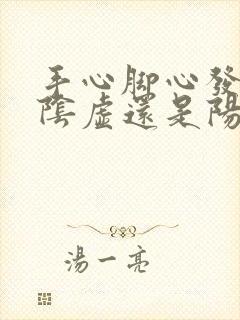 手心脚心發
陰虛還是陽
湯一亮